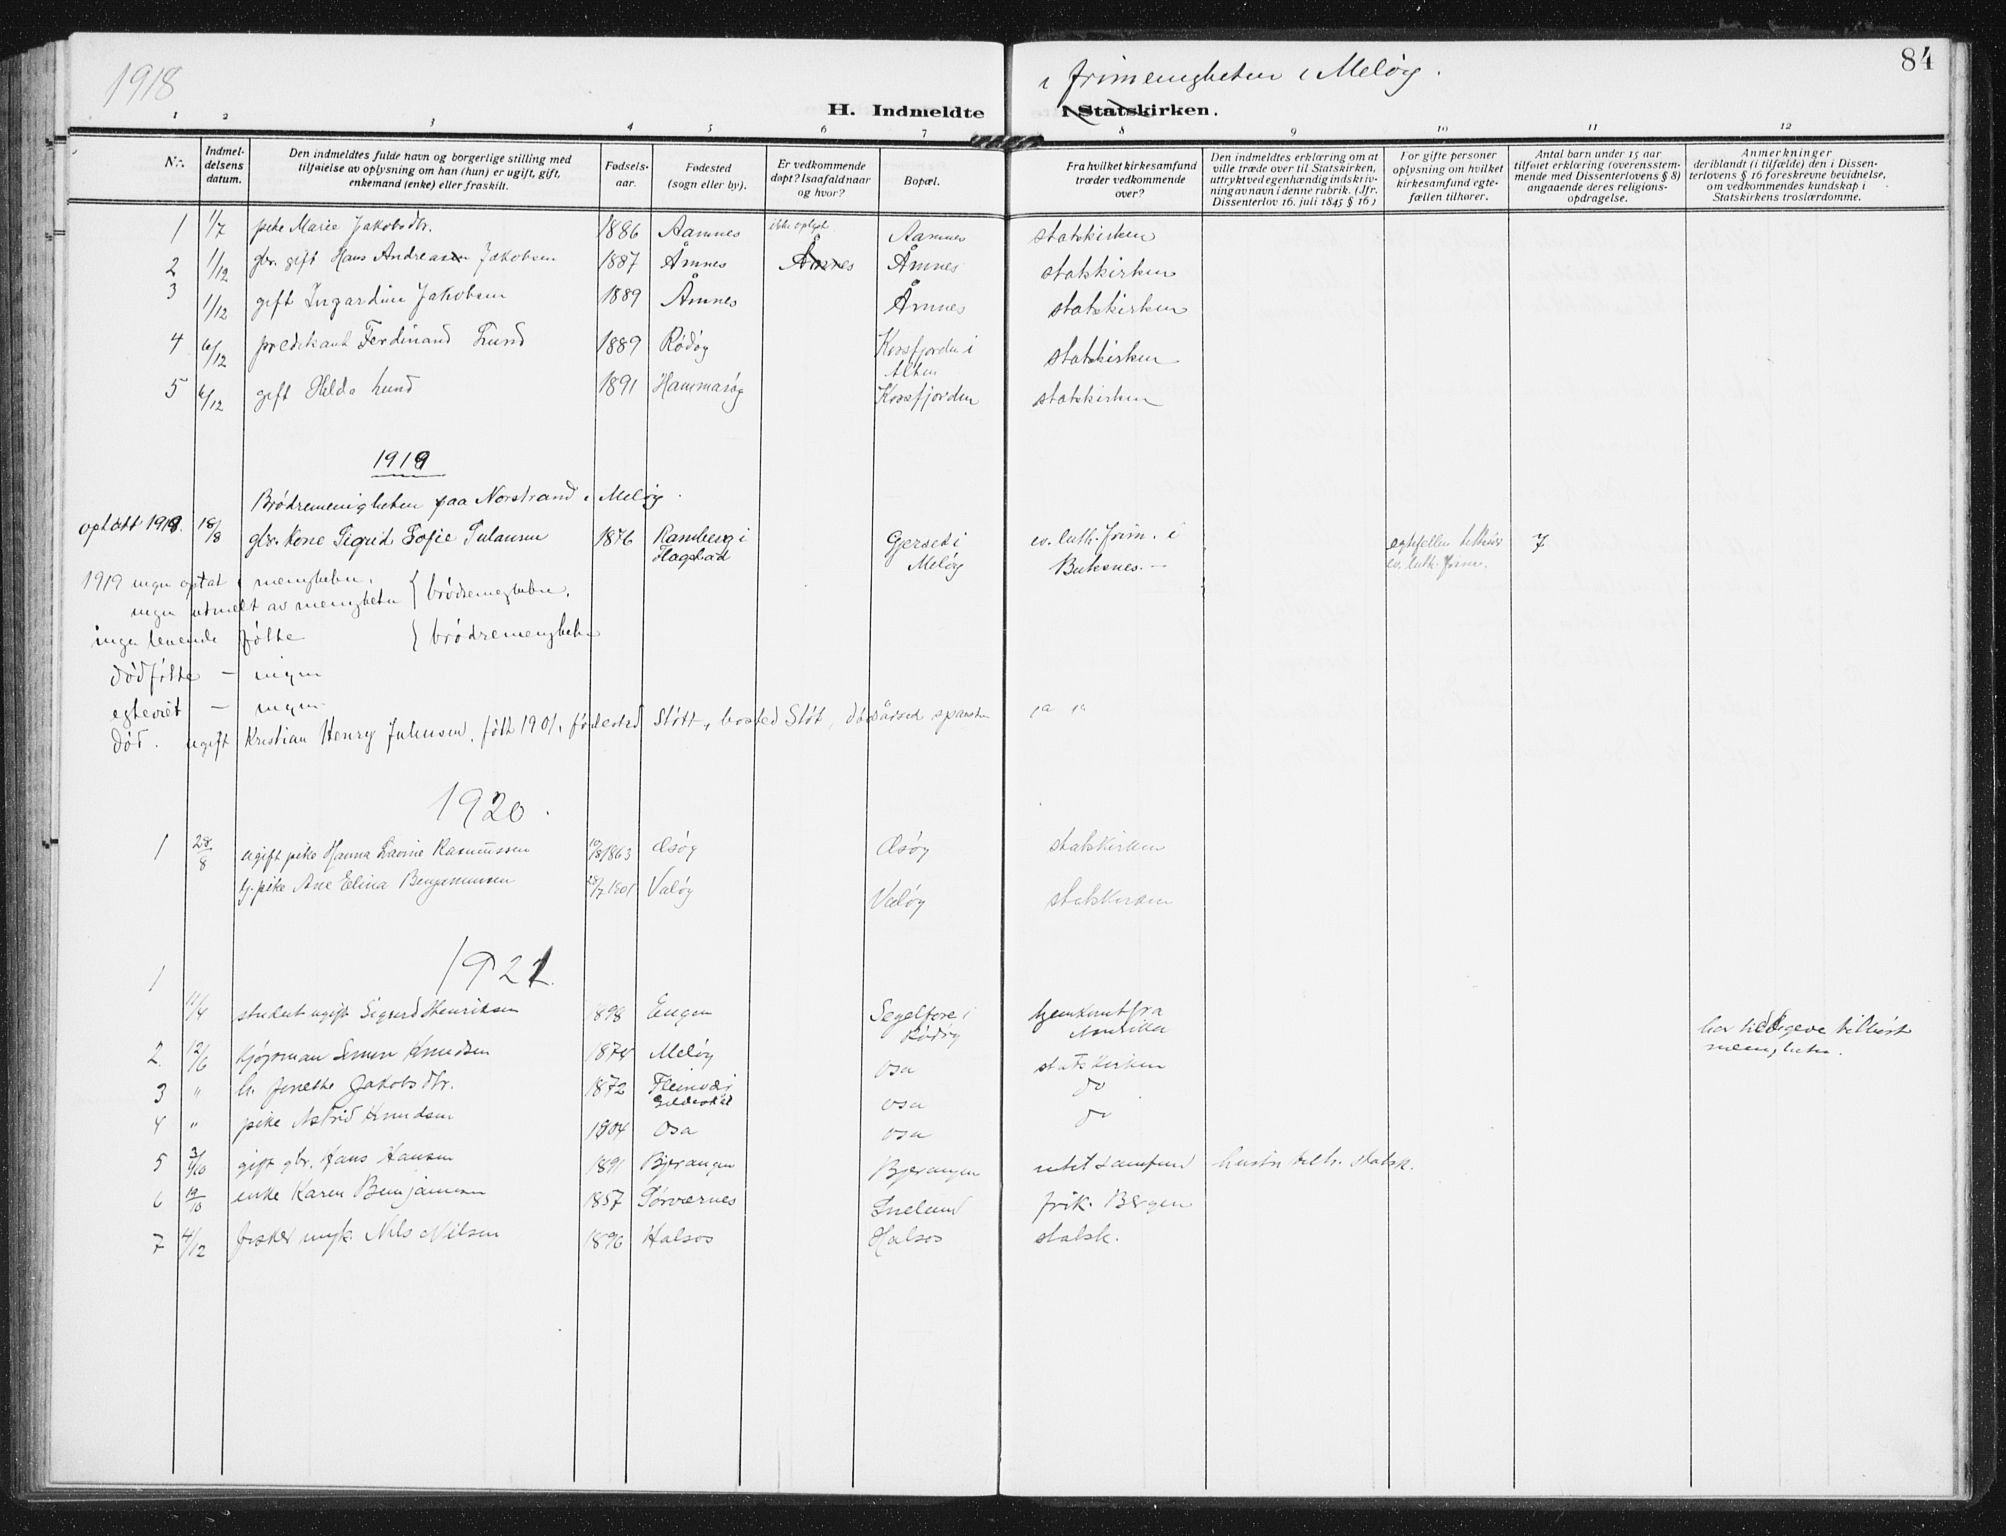 1918
i frimenigheten i Meløy.
84
H. Indmeldte i Statskirken.
1 2 3 4 5 6 7 8 9 10 11 12
Nr.
Indmel-
delsens
datum.
Den indmeldtes fulde navn og borgerlige stilling med
tilføielse av oplysning om han (hun) er ugift, gift,
enkemand (enke) eller fraskilt.
Fødsels-
aar.
Fødested
(sogn eller by).
Er vedkommende
døpt? Isaafald naar
og hvor?
Bopæl.
Fra hvilket kirkesamfund
træder vedkommende
over?
Den indmeldtes erklæring om at
ville træde over til Statskirken,
uttrykt ved egenhændig indskriv-
ning av navn i denne rubrik. (Jfr.
Dissenterlov 16. juli 1845 § 16)
For gifte personer
oplysning om hvilket
kirkesamfund egte-
fællen tilhører.
Antal barn under 15 aar
tilføiet erklæring (overensstem-
mende med Dissenterlovens § 8)
angaaende deres religions-
opdragelse.
Anmerkninger
deriblandt (i tilfælde) den i Dissen-
terlovens § 16 foreskrevne bevidnelse,
om vedkommendes kundskap i
Statskirkens troslærdomme.
1 1/7 pike Marie Jakobsdtr. 1886 Aamnes ikke oplyst Aamnes statskirken
2 1/12 gbr. gift Hans Andreassen Jakobsen 1887 Åmnes Åmnes Åmnes statskirken
3 1/12 gift Ingardine Jakobsen 1889 Åmnes Åmnes statskirken
4 6/12 predikant Ferdinand Lund 1889 Rødøy Korsfjorden i Alten statskirken
5 6/12 gift Hilda Lund 1891 Hammarøy Korsfjorden statskirken
1919
Brødremenigheten paa Norstrand i Meløy.
optatt 1918. 18/8 gbr. kone Sigrid Sofie Julausen 1876 Ramberg i Flagstad Gjersed i Meløy ev. luth. frim. i Buksnes. — egtefellen tilhør ev. luth. frim. 7
1919 ingen optat i menigheten.
ingen utmelt av menigheten { brødremenigheten.
ingen levende følte { brødremenigheten
dødfølte — ingen
egteviet — ingen.
død. ugift Kristian Henry Julausen, følt 1901, fødested Støtt, bosted Støt, dødsårsad spansken
1920.
1 28/8 ugift pike Hanna Lavine Rasmussen 10/8 1863 Æsøy Æsøy statskirken
tj. pike Ane Elina Benjaminsen 28/7 1901 Valøy Valøy statskirken
1921.
1 11/4 student ugift Sigurd Henriksen 1898 Engen Segelfore i Rødøy hjemkomt fra Amerika har tidligere tilhørt menigheten.
2. 12/6 Simon Knudsen 1874 Meløy osa statskirken
3 " h. Jenette Jakobsdtr. 1872 Fleinvær Gildeskål osa do
4 " pike Astrid Knudsen 1904 Osa osa do
5 3/10 gift gbr. Hans Hansen 1891 Bjerangen Bjerangen intet samfund hustr. tilh. statsk.
6 19/10 enke Karen Benjaminsen 1857 Sørværnes frik. Bergen
7 4/12 fisker ungk. Nils Nilsen 1896 Halsos Halsos statsk.